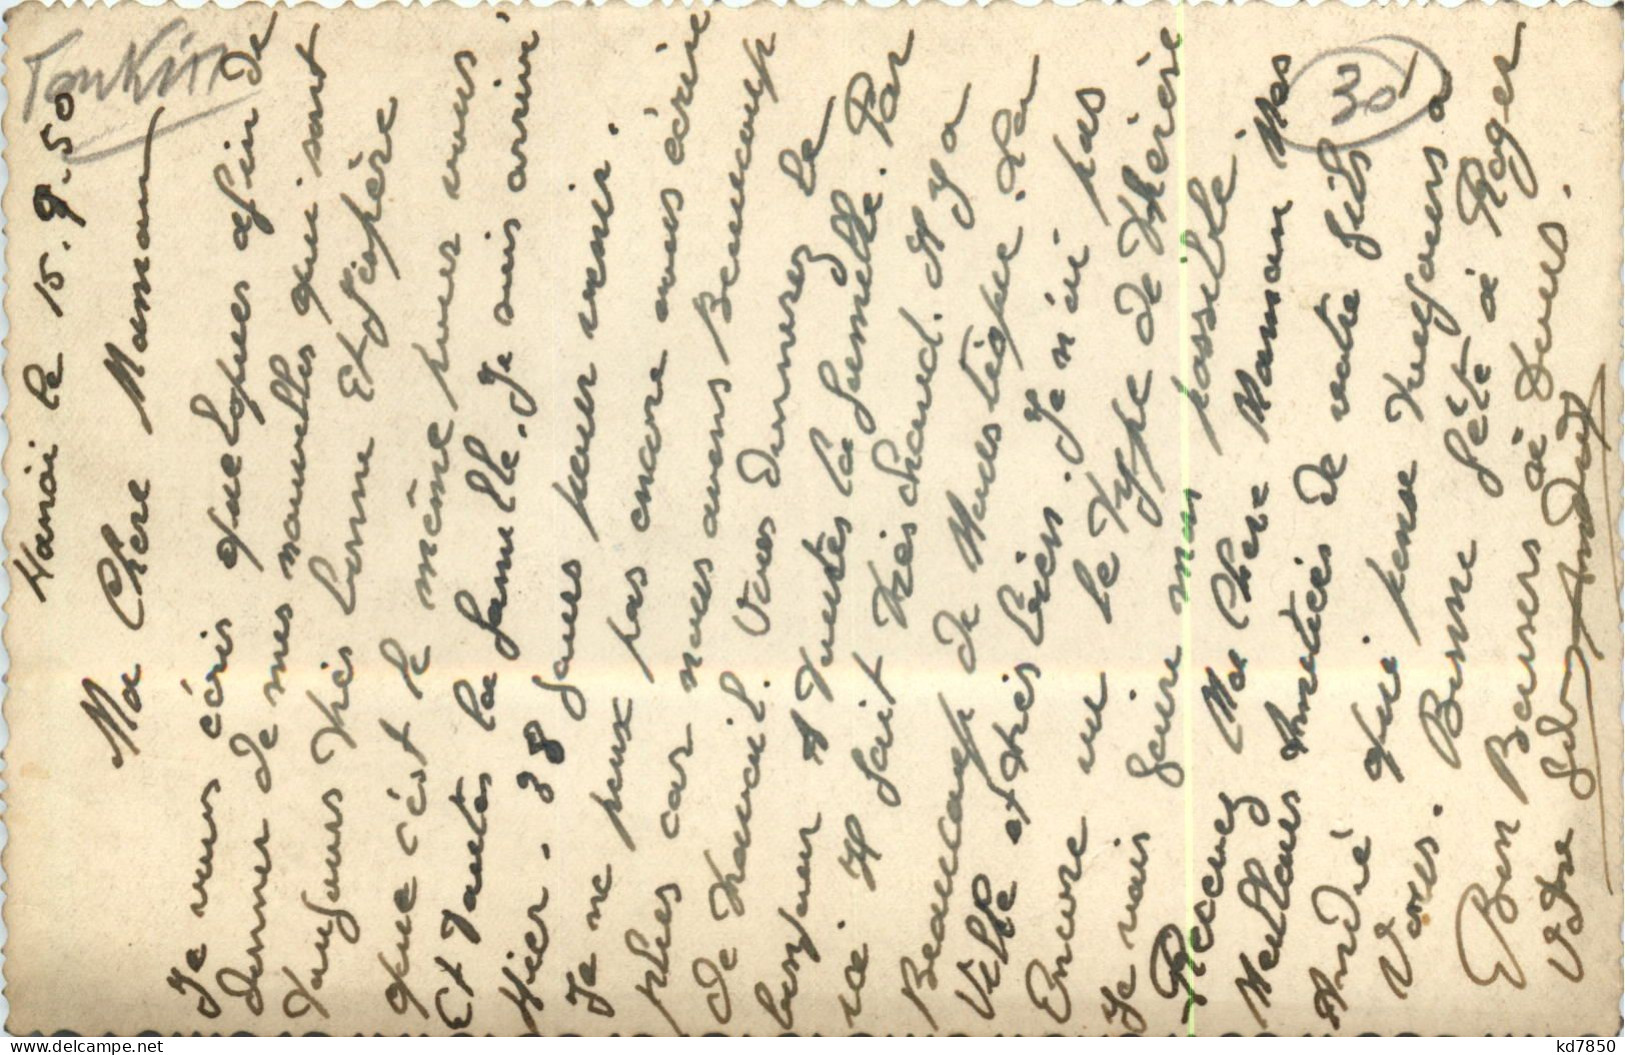 Tonkin
30
Hanoi le 15.9.50
Ma Chere Maman
Je vous écris quelques afin de
donner de mes nouvelles qui sont
toujours très bonne Et J'éspère
que c'est le même pour vous
Et toutes la famille. Je suis arrivé
Hier. 38 Jours pour venir.
Je ne peux pas encore vous écrire
plus car nous avons Beaucoup
de travail. Vous donnerez le
bonjour à toutes la famille. Par
ici Il fait très chaud. Il y a
Beaucoup de Moustique. La
Ville et très bien. Je n'ai pas
Encore vu le type de Thérère
Je vais faire mon possible
Recevez Ma Chere Maman Mes
Meilleurs Amitiés de votre fils
André qui pense toujours a
Vous. Bonne fête à Roger
Bon Baisers à tous.
Votre fils André
www.delcampe.net
kd7850